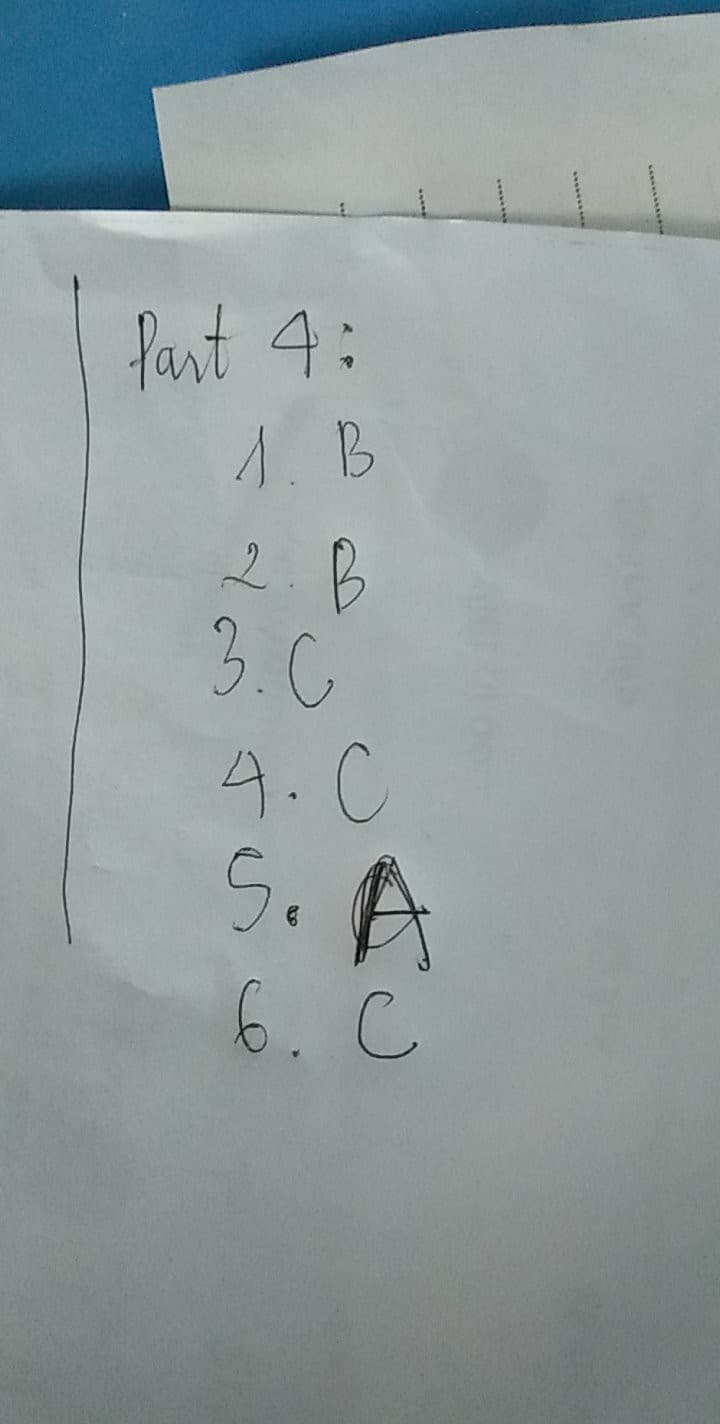 Part 4:
1. B
2. B
3. C
4. C
5. A
6. C